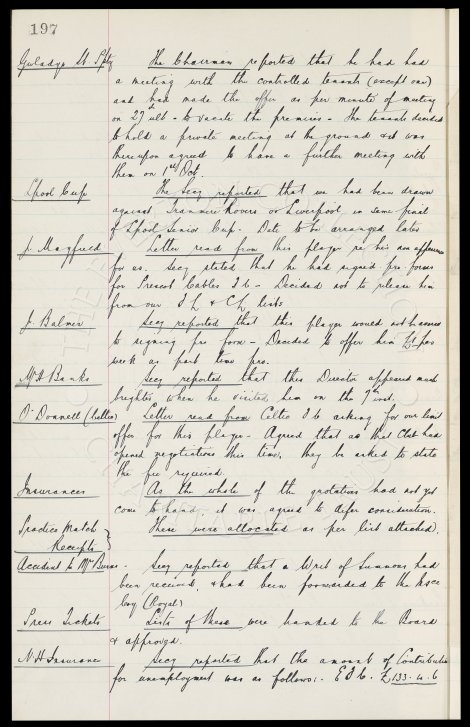 197
Guladys St Ppty The Chairman reported that he had had
a meeting with the controlled tenants (except one)
and had made the offer as per minute of meeting
on 27th ult - to vacate the premises - The tenants decided
to hold a private meeting at the ground & it was
thereupon agreed to have a further meeting with
them on 1st Oct.
Lpool Cup The Secy reported that we had been drawn
against Tranmere Rovers or Liverpool in semi final
of Lpool Senior Cup. Date to be arranged later
J. Mayfield Letter read from this player re his non appearance
for us. Secy stated that he had signed pro forms
for Prescot Cables F.C. - Decided not to release him
from our F.L & C.L lists
J. Balmer Secy reported that this player would not be averse
to signing pro form - Decided to offer him per
week as part time pro.
Mr A Banks Secy reported that this Director appeared much
brighter when he visited him on the 7th inst.
O'Donnell (Celtic) Letter read from Celtic F.C. asking for our limit
offer for this player. Agreed that as that Club had
opened negotiations this time, they be asked to state
the fee required.
Insurances As the whole of the quotations had not yet
come to hand, it was agreed to defer consideration.
Practice Match
Receipts } These were allocated as per list attached.
Accident to Mr Burns. Secy reported that a Writ of Summons had
been received, & had been forwarded to the Insce
Coy (Royal)
Press Tickets Lists of these were handed to the Board
& approved.
N.H Insurance Secy reported that the amount of Contribution
for unemployment was as follows:- E.F.C. £133.4.6